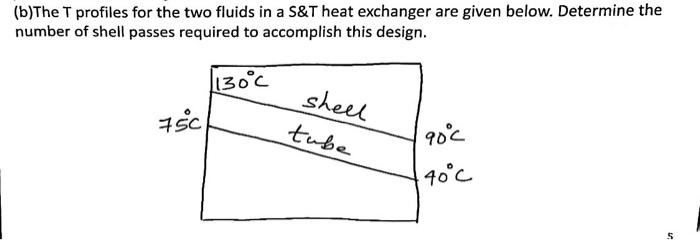 (b)The T profiles for the two fluids in a S&T heat exchanger are given below. Determine the
number of shell passes required to accomplish this design.
130°C
shell
75°C
tube
90°C
40°C
5